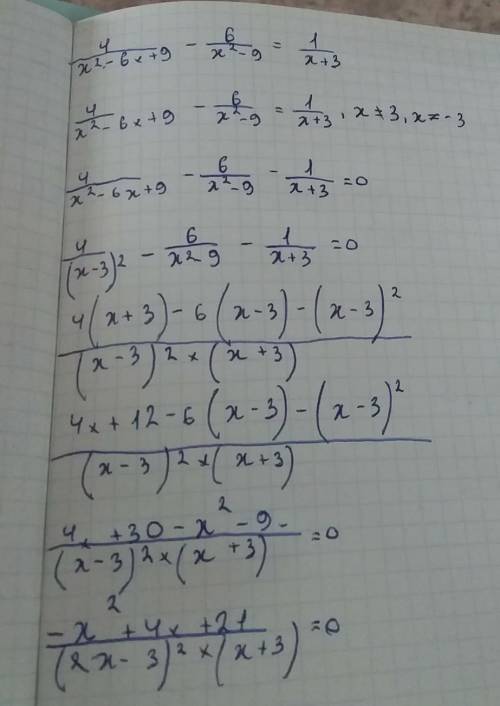 4/(x²-6x+9) - 6/(x²-9) = 1/(x+3)
4/(x²-6x+9) - 6/(x²-9) = 1/(x+3), x≠3, x≠-3
4/(x²-6x+9) - 6/(x²-9) - 1/(x+3) = 0
4/(x-3)² - 6/(x²-9) - 1/(x+3) = 0
(4(x+3)-6(x-3)-(x-3)²)/((x-3)²×(x+3))
(4x+12-6(x-3)-(x-3)²)/((x-3)²×(x+3))
(4x+30-x²-9-)/((x-3)²×(x+3)) = 0
(-x²+4x+21)/((2x-3)²×(x+3)) = 0